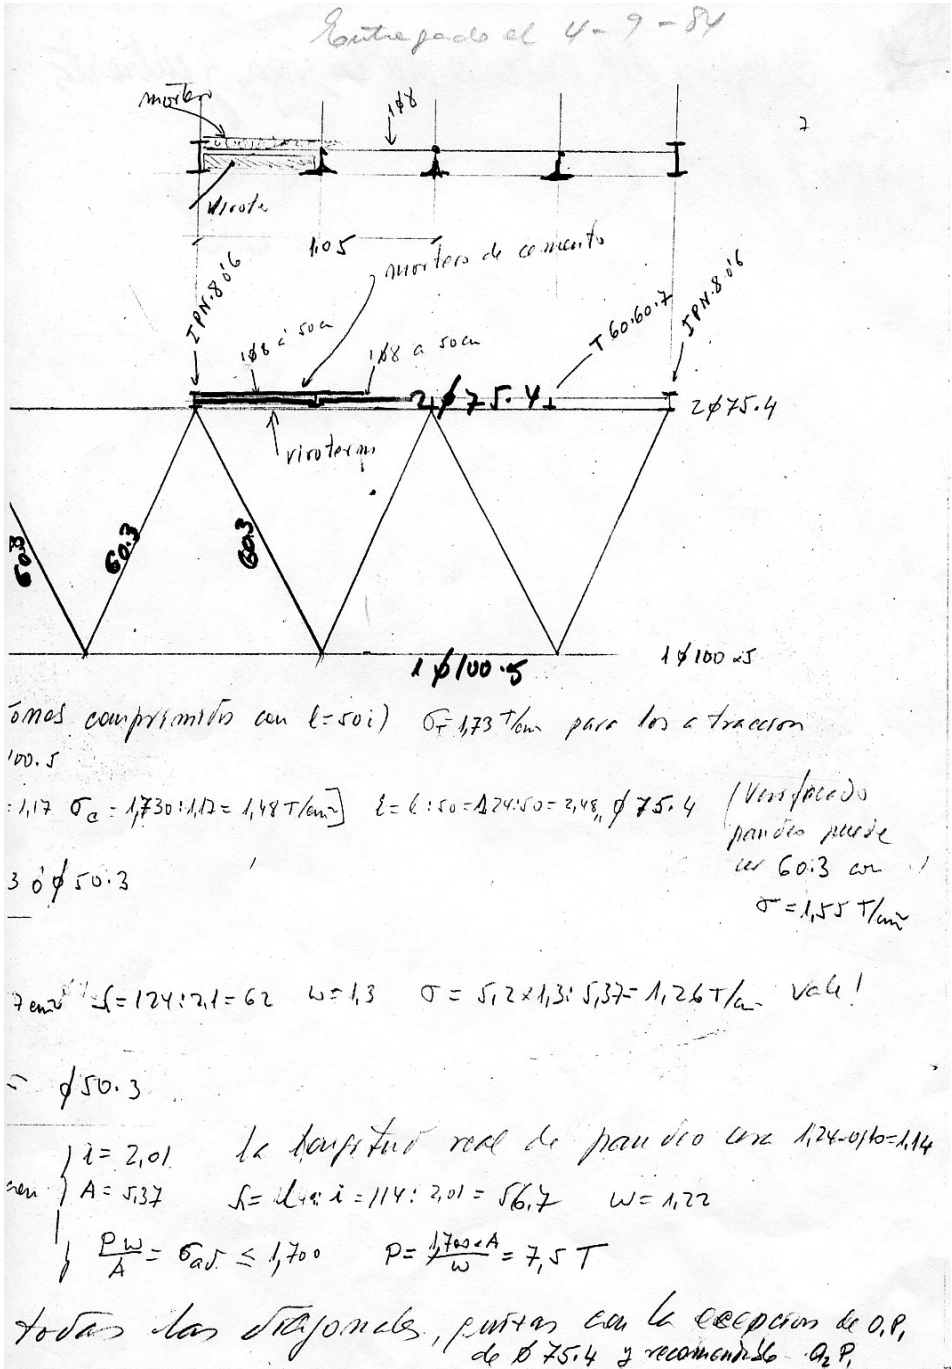 Entregado el 4-9-84
mortero
1ϕ8
7
Virote
1.05
mortero de cemento
IPN.8 ó 6
1ϕ8 a 50cm
1ϕ8 a 50cm
T 60.60.7
IPN.8 ó 6
2ϕ75.4
2ϕ75.4
60.3
60.3
60.3
1ϕ100.5
1ϕ100x5
comprimidos con l=50i) σ=1,73 T/cm para los a traccion
100.5
=1,17 σc = 1,730:1,17 = 1,48 T/cm²] i=l:50=124:50=2,48,, ϕ75.4
(Verificado
pandeo puede
ser 60.3 con
σ=1,55 T/cm²
3 ó ϕ50.3
7 cm² λ=124:2,1=62 w=1,3 σ = 5,2x1,3:5,37=1,26T/cm vale!
= ϕ50.3
i=2,01 la longitud real de pandeo sera 1,24-0,10=1,14
A=5,37 i=114:2,01=56,7 w=1,22
Pw/A = σad. ≤ 1,700 P=1,700xA/w=7,5 T
todas las diagonales, con la excepcion de O,P,
de ϕ75.4 y